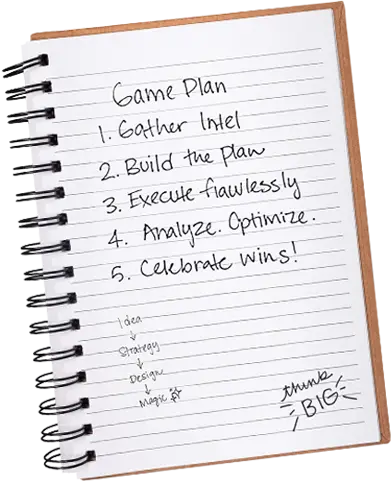 Game Plan
1. Gather Intel
2. Build the plan
3. Execute flawlessly
4. Analyze. Optimize.
5. Celebrate wins!
Idea
↓
Strategy
↓
Design
↓
Magic
think
BIG